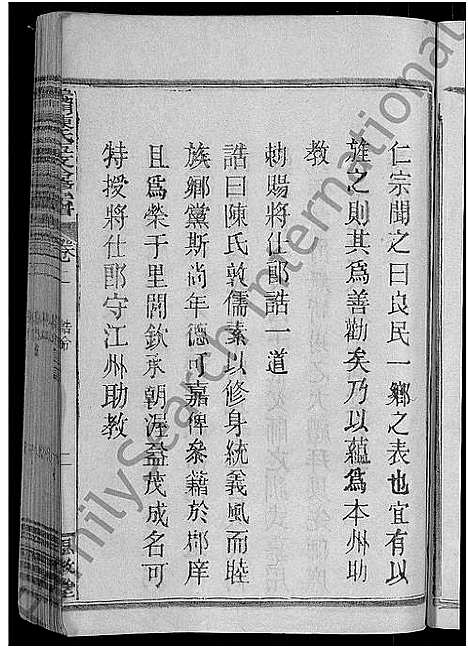 仁宗聞之曰良民一鄉之表也宜有以
旌之則其為善勸矣乃以蘊為本州助
教
勑賜將仕郎誥一道
誥曰陳氏敦儒素以修身統義風而睦
族鄉黨斯尚年德可嘉俾叅藉於郡庠
且為榮于里閈欽承朝渥益茂成名可
特授將仕郎守江州助教
卷
誥
FamilySearch International